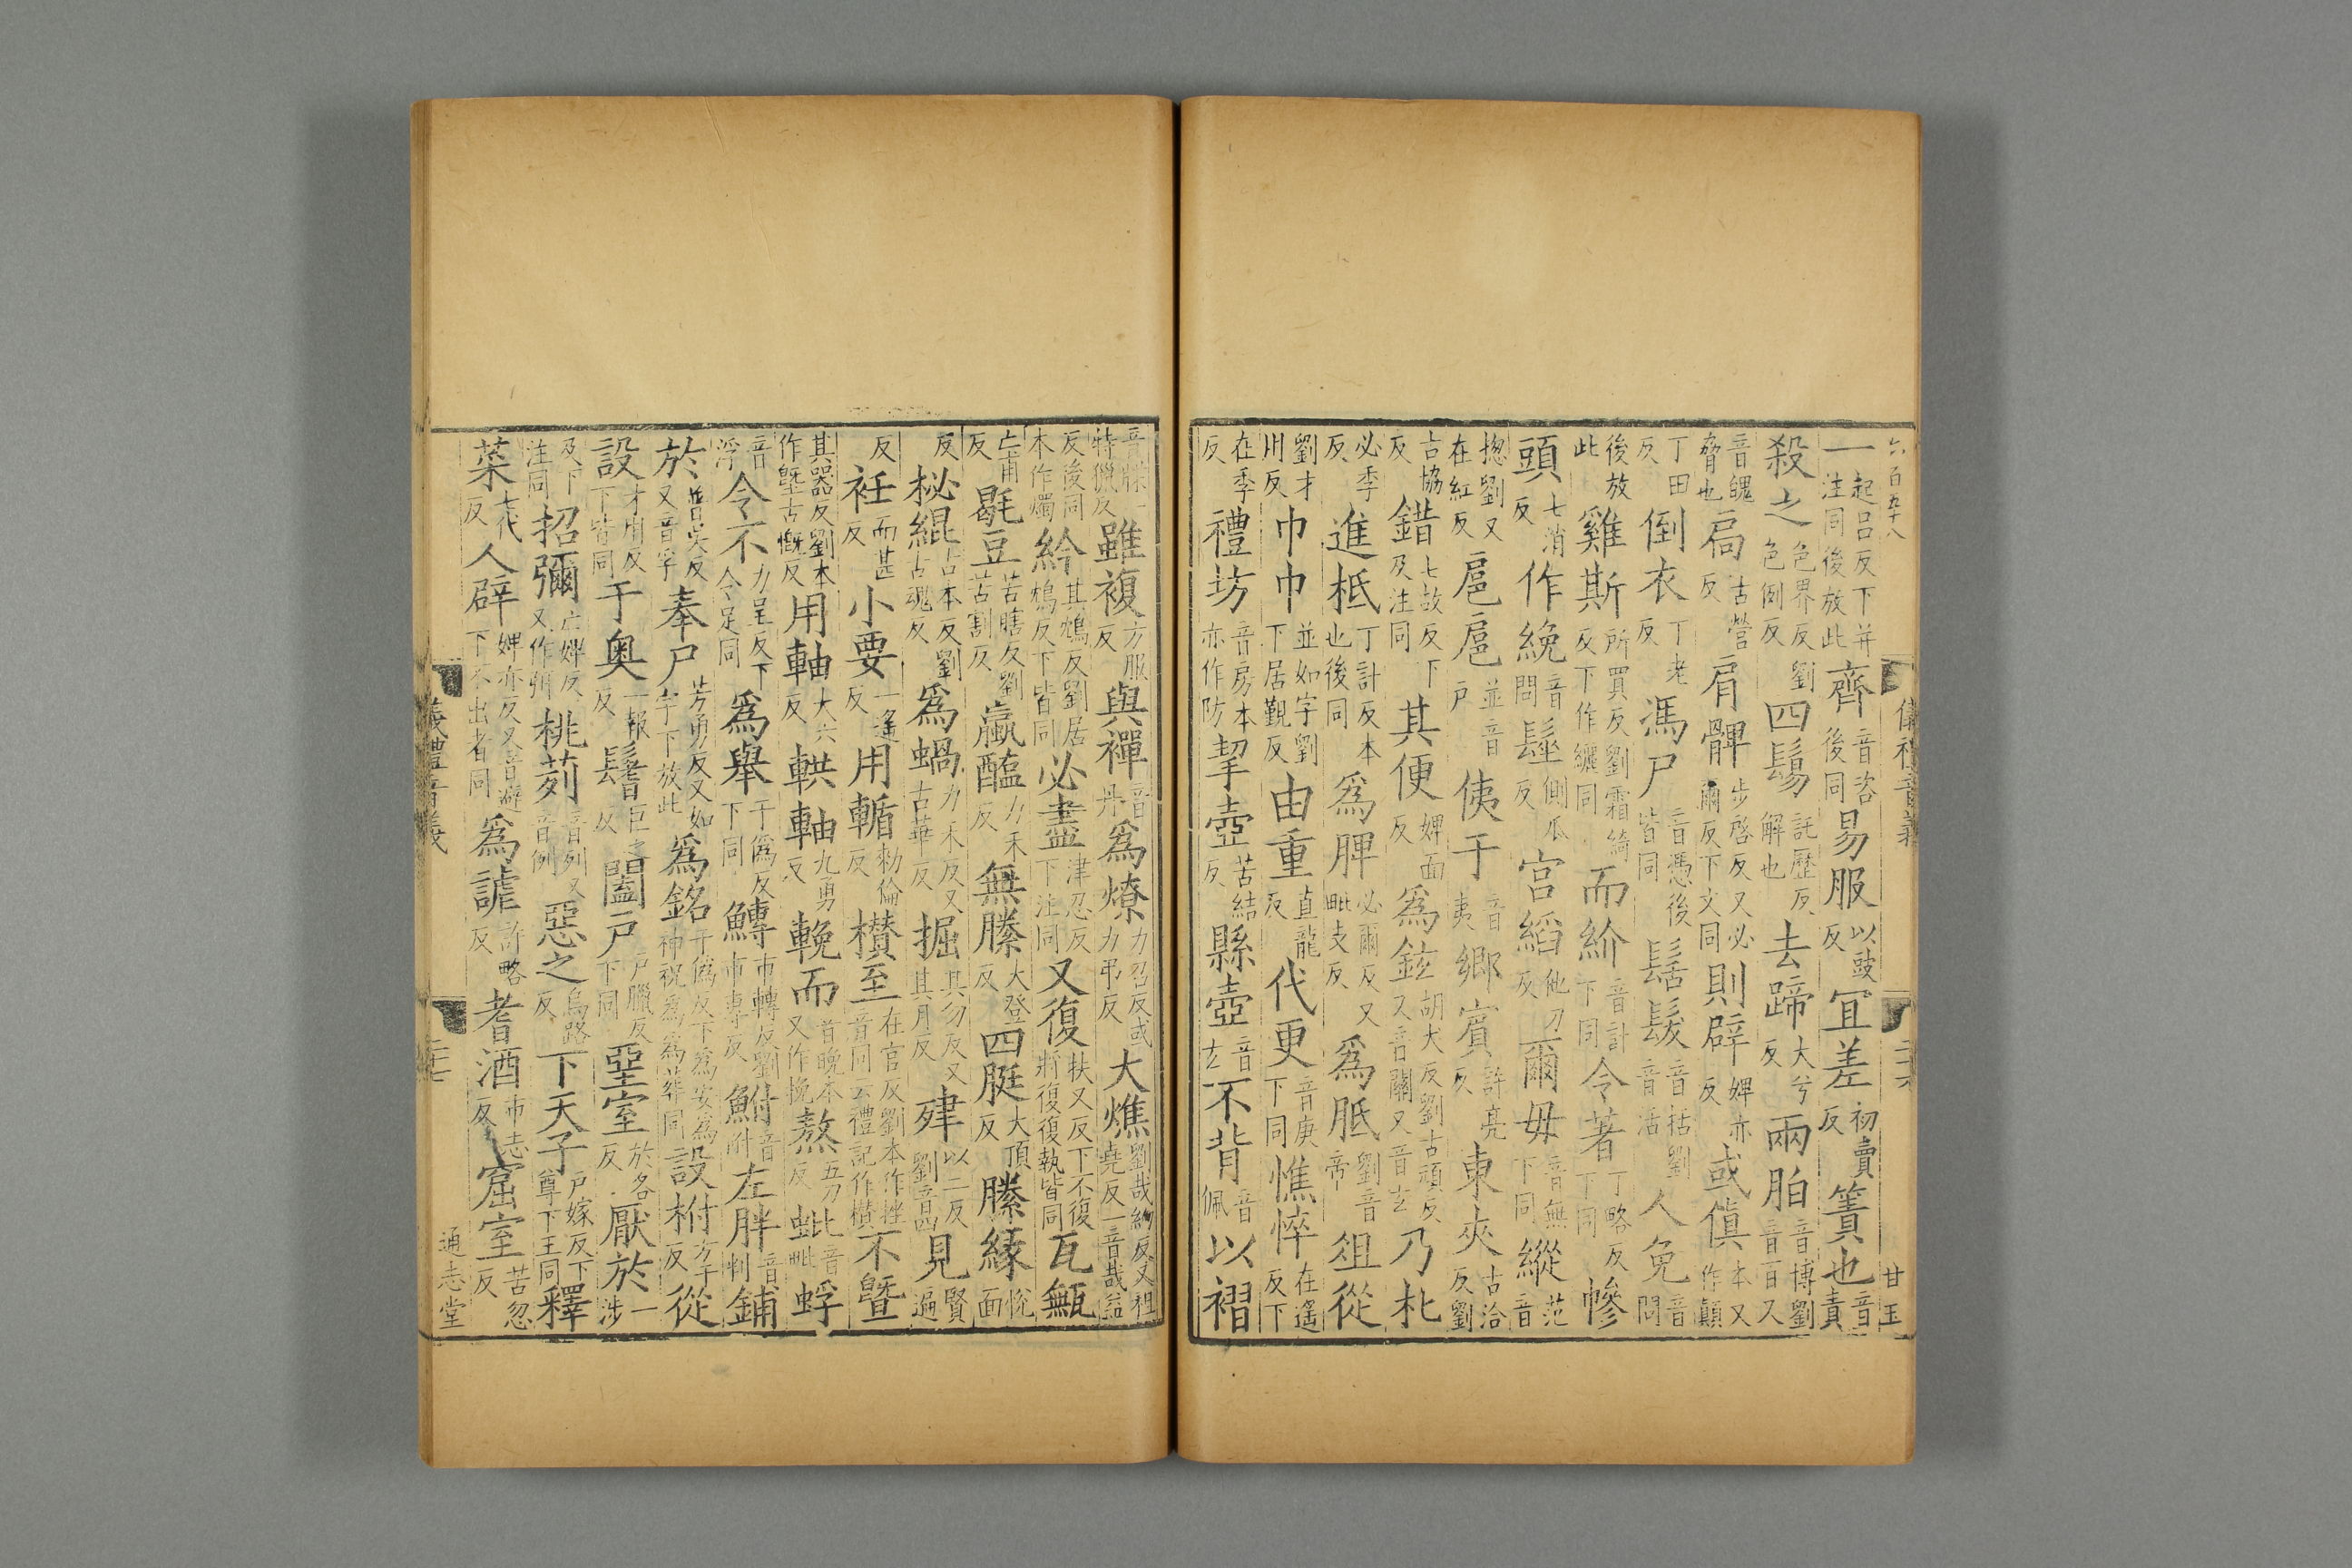 六百五十八 儀禮音義 二六 甘玉
一起呂反下并注同後放此齊音咨後同易服以豉反冝差初賣反簀也音責
殺之色界反劉色例反四鬄託歷反解也去蹄大兮反兩胉音博劉音百又
音魄脅也扃古營反肩髀步啓反又必爾反下文同則辟婢亦反或傎本又作顛
丁田反倒衣丁老反馮尸音憑後皆同髺髮音括劉音活人免音問
後放此雞斯所買反劉霜綺反下作纚同而紒音計下同令著丁略反下同幓
頭七消反作絻音問髽側瓜反宫縚他刀反爾毋音無下同縱范音
揔劉又在紅反扈扈並音户侇于音夷鄉賓許亮反東夾古洽反劉
古協反錯七故反下及注同其便婢面反爲鉉胡犬反劉古頑反又音關又音玄乃朼
必季反進柢丁計反本也後同爲脾必爾反又毗支反爲胝劉音帝俎從
劉才用反巾巾並如字劉下居覲反由重直龍反代更音庚下同憔悴在遙反下
在季反禮坊音房本亦作防挈壺苦結反縣壺音玄不背音佩以褶
音牒一特獵反雖複方服反與襌音丹爲燎力召反或力弔反大燋劉哉約反又祖堯反一音哉益
反後同本作燭紟其鴆反劉居鴆反下皆同必盡津忍反下注同又復扶又反下不復將復復執皆同瓦甒
亡甫反毼豆苦瞎反劉苦割反蠃醢力禾反無縢大登反四脡大頂反縢緣悅面
反柲緄古本反劉古魂反爲蝸力禾反又古華反掘其勿反又其月反肂以二反劉音四見賢遍
反衽而甚反小要一遙反用輴勑倫反欑至在官反劉本作挫音同云禮記作欑不曁
其器反劉本作墍古慨反用軸大六反輁軸九勇反輓而音晚本又作挽熬五刀反蚍音毗蜉
音浮令不力呈反下令足同爲舉于僞反下同鱄市轉反劉市專反鮒音附左胖音判鋪
於普吳反又音孚奉尸芳勇反又如字下放此爲銘于僞反下爲安爲神祝爲爲葬同設柎方于反從
設才用反下皆同于奥一報反鬐巨之反闔户户臘反下同堊室於各反厭於一涉
及下注同招彌亡婢反又作弭桃茢音列又音例惡之烏路反下天子户嫁反下尊下王同釋
菜七代反人辟婢亦反又音避下不出者同爲謔許略反耆酒市志反窟室苦忽反
儀禮音義 二七 通志堂